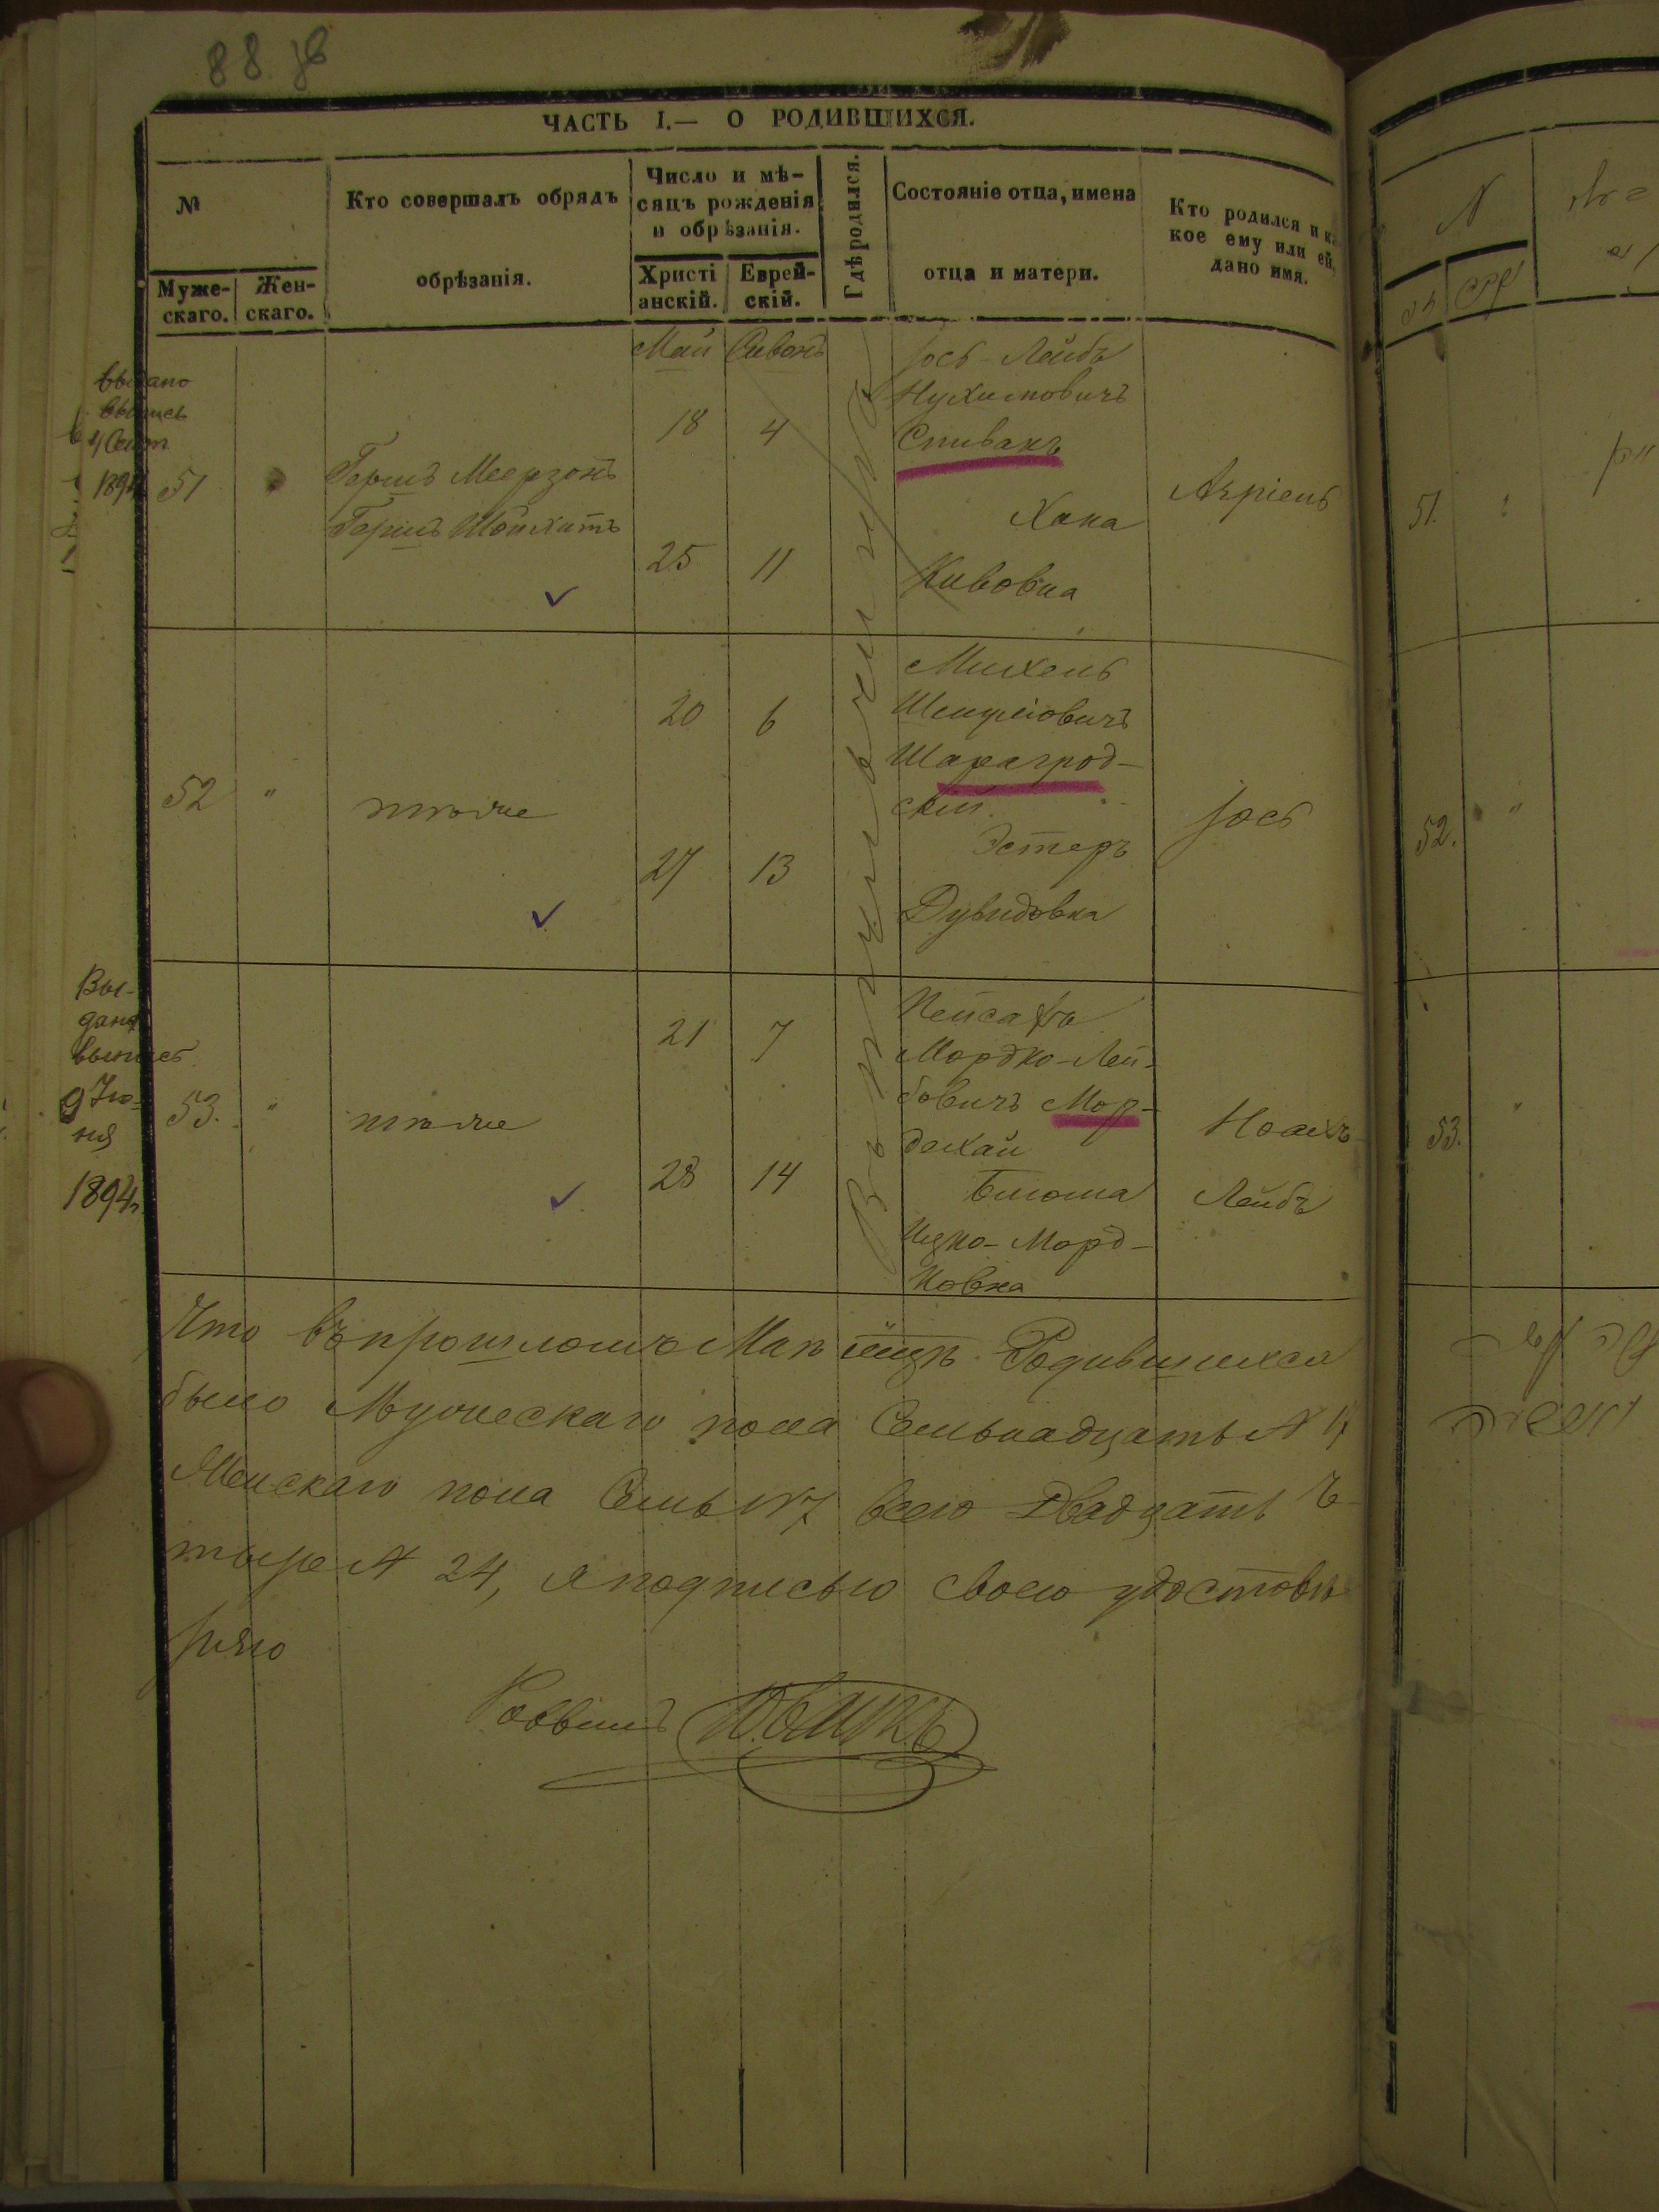 88 зв
ЧАСТЬ I.— О РОДИВШИХСЯ.
№
Муже-
скаго.
Жен-
скаго.
Кто совершалъ обрядъ
обрѣзанія.
Число и мѣ-
сяцъ рожденія
и обрѣзанія.
Христі
анскій.
Еврей-
скій.
Гдѣ родился.
Состояніе отца, имена
отца и матери.
Кто родился и ка
кое ему или ей,
дано имя.
Май Сивонъ
выдано
выпись
4 Сент
189
51
Гершъ Меерзонъ
Гершъ Шойхитъ
18 4
25 11
Іось-Лейбъ
Нухимовичъ
Спивакъ
Хана
Кивовна
Азріель
52 "
тоже
20 6
27 13
Михель
Шмулiовичъ
Шараград-
скій.
Эстеръ
Дувидовна
Іось
Вы-
дана
выпись
9 Ію-
ня
1894
53. "
тоже
21 7
28 14
Пейсахъ
Мордко-Лей-
бовичъ Мор-
дохай
Блюма
Ицко-Морд-
ковна
Ноахъ
Лейбъ
Что въ прошломъ Маѣ мцѣ Родившихся
было Мужескаго пола Семьнадцать № 17
Женскаго пола Семь № 7 всего Двадцать Че
тыре № 24, я подписью своею удостовѣ
ряю
Раввинъ
51. "
52. "
53. "